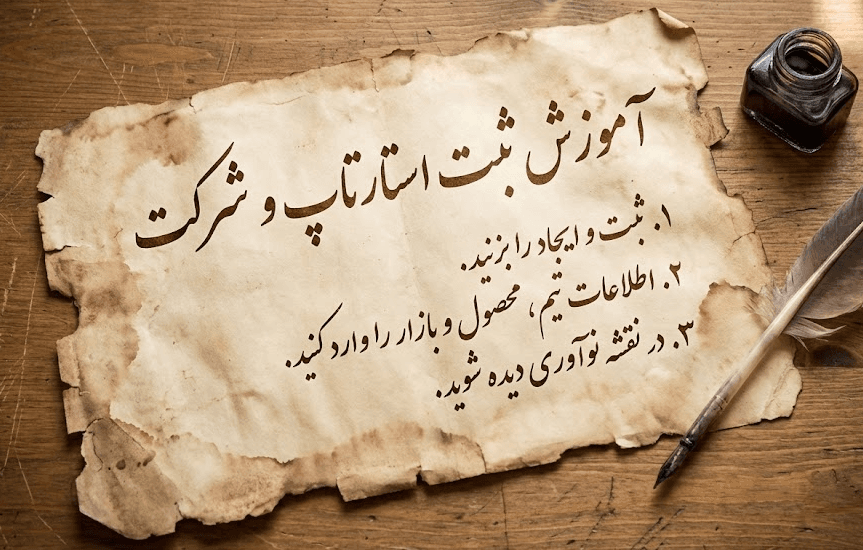 آموزش ثبت استارتاپ و شرکت
۱. ثبت و ایجاد را بزنید.
۲. اطلاعات تیم، محصول و بازار را وارد کنید.
۳. در نقشه نوآوری دیده شوید.